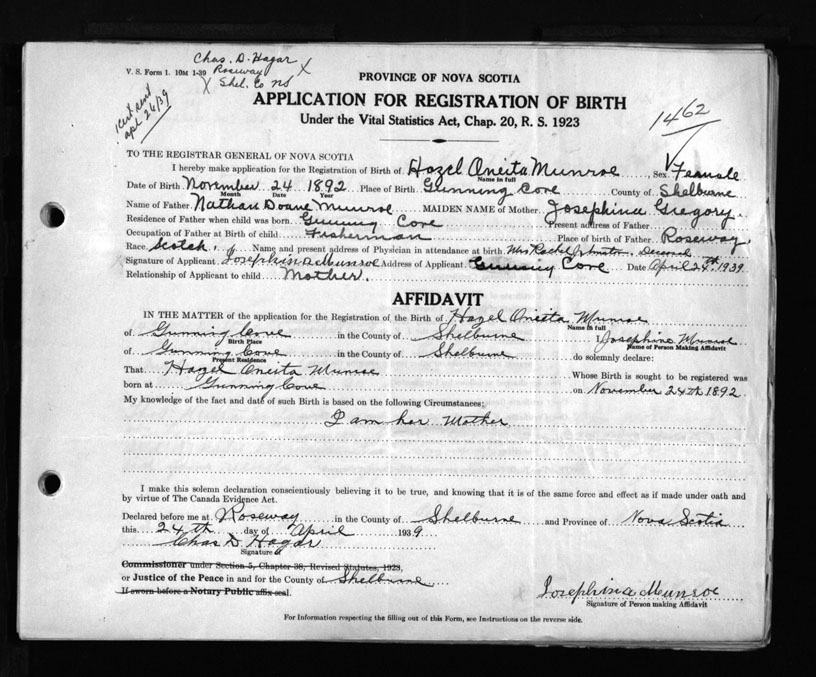 Chas. D. Hagar
V. S. Form 1. 10M 1-39 Roseway X
X Shel. Co NS
PROVINCE OF NOVA SCOTIA
APPLICATION FOR REGISTRATION OF BIRTH
Under the Vital Statistics Act, Chap. 20, R. S. 1923
1462
TO THE REGISTRAR GENERAL OF NOVA SCOTIA
I hereby make application for the Registration of Birth of Hazel Oneita Munroe Sex Female
Name in full
Date of Birth November 24 1892 Place of Birth Gunning Cove County of Shelburne
Month Date Year
Name of Father Nathan Doane Munroe MAIDEN NAME of Mother Josephina Gregory.
Residence of Father when child was born Gunning Cove Present address of Father
Occupation of Father at Birth of child Fisherman Place of birth of Father Roseway
Race Scotch. Name and present address of Physician in attendance at birth Mrs Rachel Johnston
Signature of Applicant Josephina Munroe Address of Applicant Gunning Cove Date April 24th 1939
Relationship of Applicant to child Mother.
AFFIDAVIT
IN THE MATTER of the application for the Registration of the Birth of Hazel Oneita Munroe
Name in full
of Gunning Cove in the County of Shelburne I Josephine Munroe
Birth Place Name of Person Making Affidavit
of Gunning Cove in the County of Shelburne do solemnly declare:
Present Residence
That Hazel Oneita Munroe Whose Birth is sought to be registered was
born at Gunning Cove on November 24th 1892
My knowledge of the fact and date of such Birth is based on the following Circumstances:
I am her Mother
I make this solemn declaration conscientiously believing it to be true, and knowing that it is of the same force and effect as if made under oath and
by virtue of The Canada Evidence Act.
Declared before me at Roseway in the County of Shelburne and Province of Nova Scotia
this 24th day of April 1939
Chas D. Hagar
Signature
Commissioner under Section 5, Chapter 38, Revised Statutes, 1923,
or Justice of the Peace in and for the County of Shelburne
If sworn before a Notary Public affix seal.
Josephina Munroe
Signature of Person making Affidavit
For Information respecting the filling out of this Form, see Instructions on the reverse side.